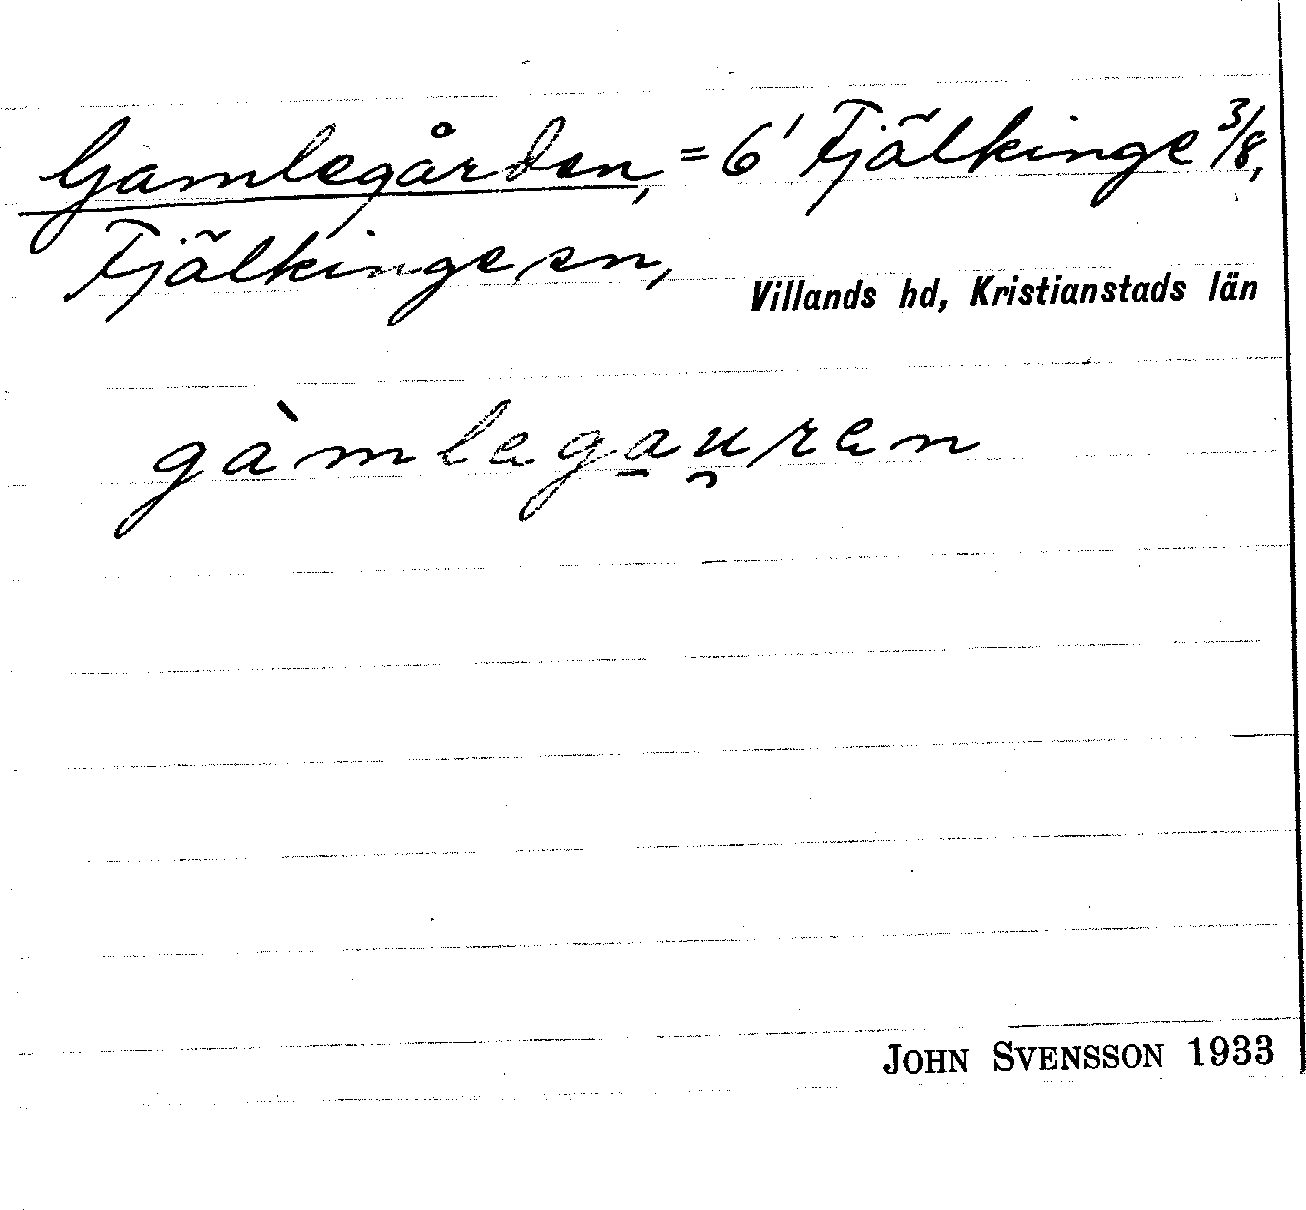 Gamlegården, = 6¹ Fjälkinge 3/8,
Fjälkinge sn,
Villands hd, Kristianstads län
gàmlega̱u̯ren
JOHN SVENSSON 1933